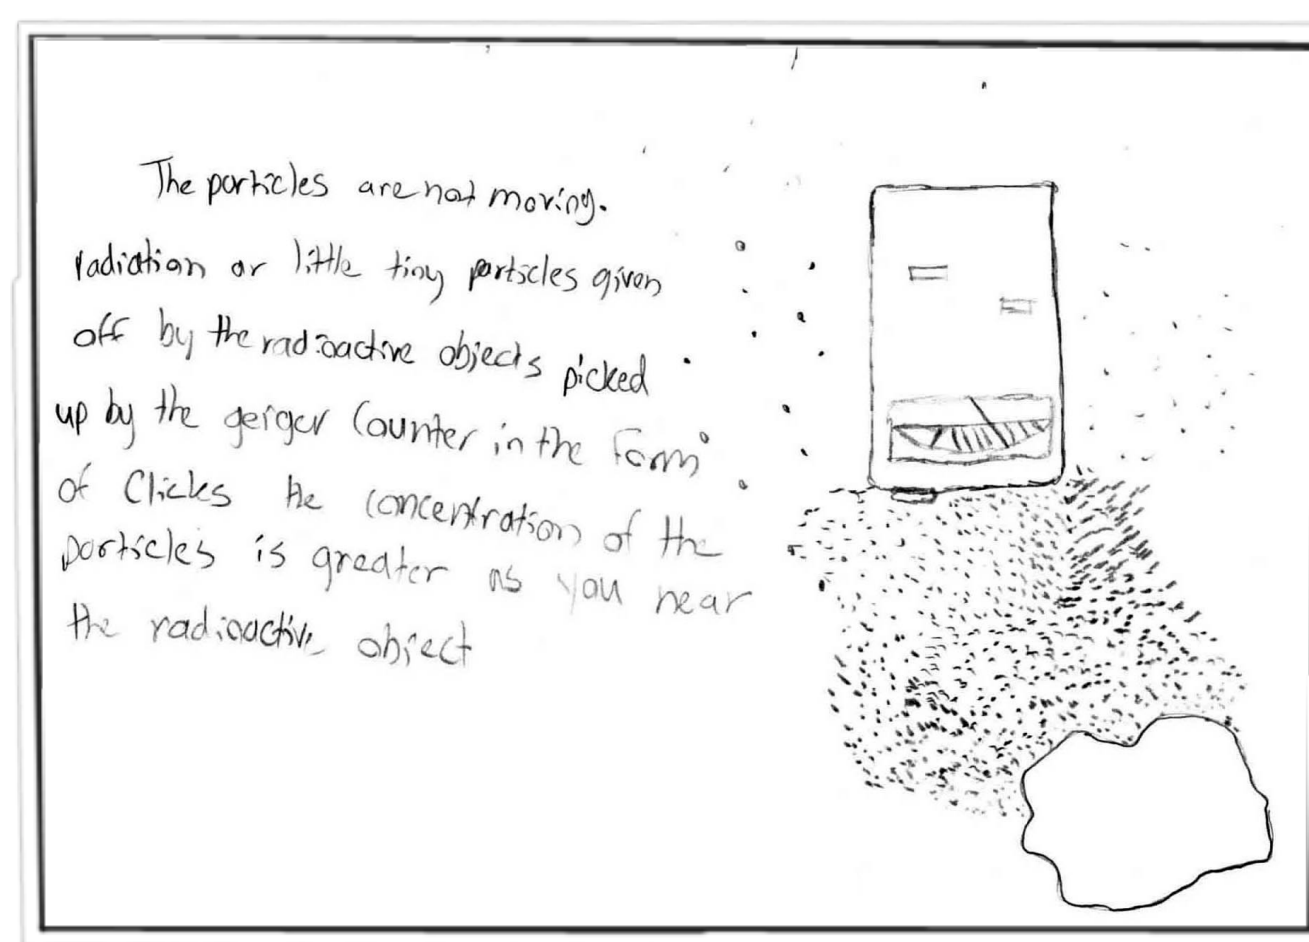 The particles are not moving.
radiation or little tiny particles given
off by the radioactive objects picked
up by the geiger Counter in the form
of Clicks the concentration of the
particles is greater as you near
the radioactive object